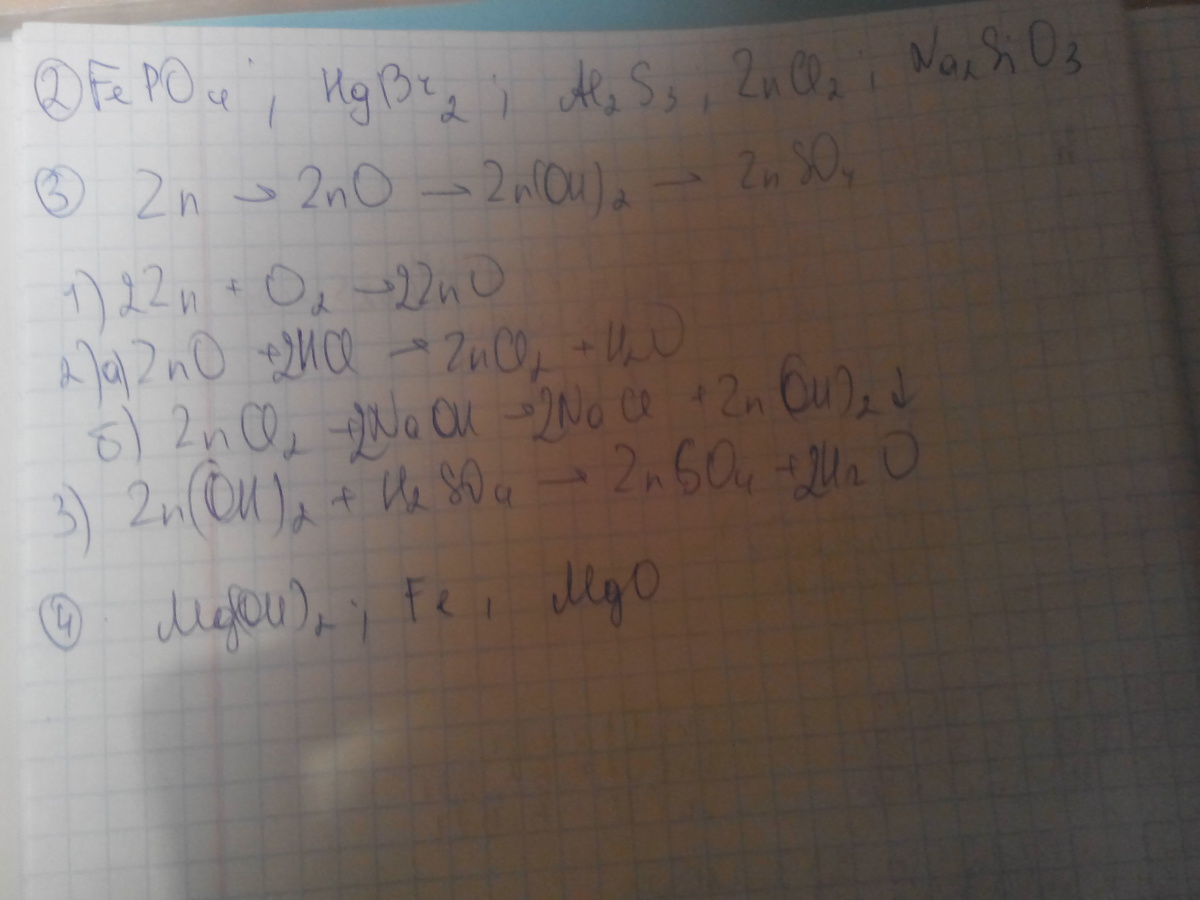 ② FePO₄ ; HgBr₂ ; Al₂S₃ , ZnCl₂ ; Na₂SiO₃
③ Zn → ZnO → Zn(OH)₂ → ZnSO₄
1) 2Zn + O₂ → 2ZnO
2) а) ZnO + 2HCl → ZnCl₂ + H₂O
б) ZnCl₂ + 2NaOH → 2NaCl + Zn(OH)₂↓
3) Zn(OH)₂ + H₂SO₄ → ZnSO₄ + 2H₂O
④ Mg(OH)₂ ; Fe , MgO